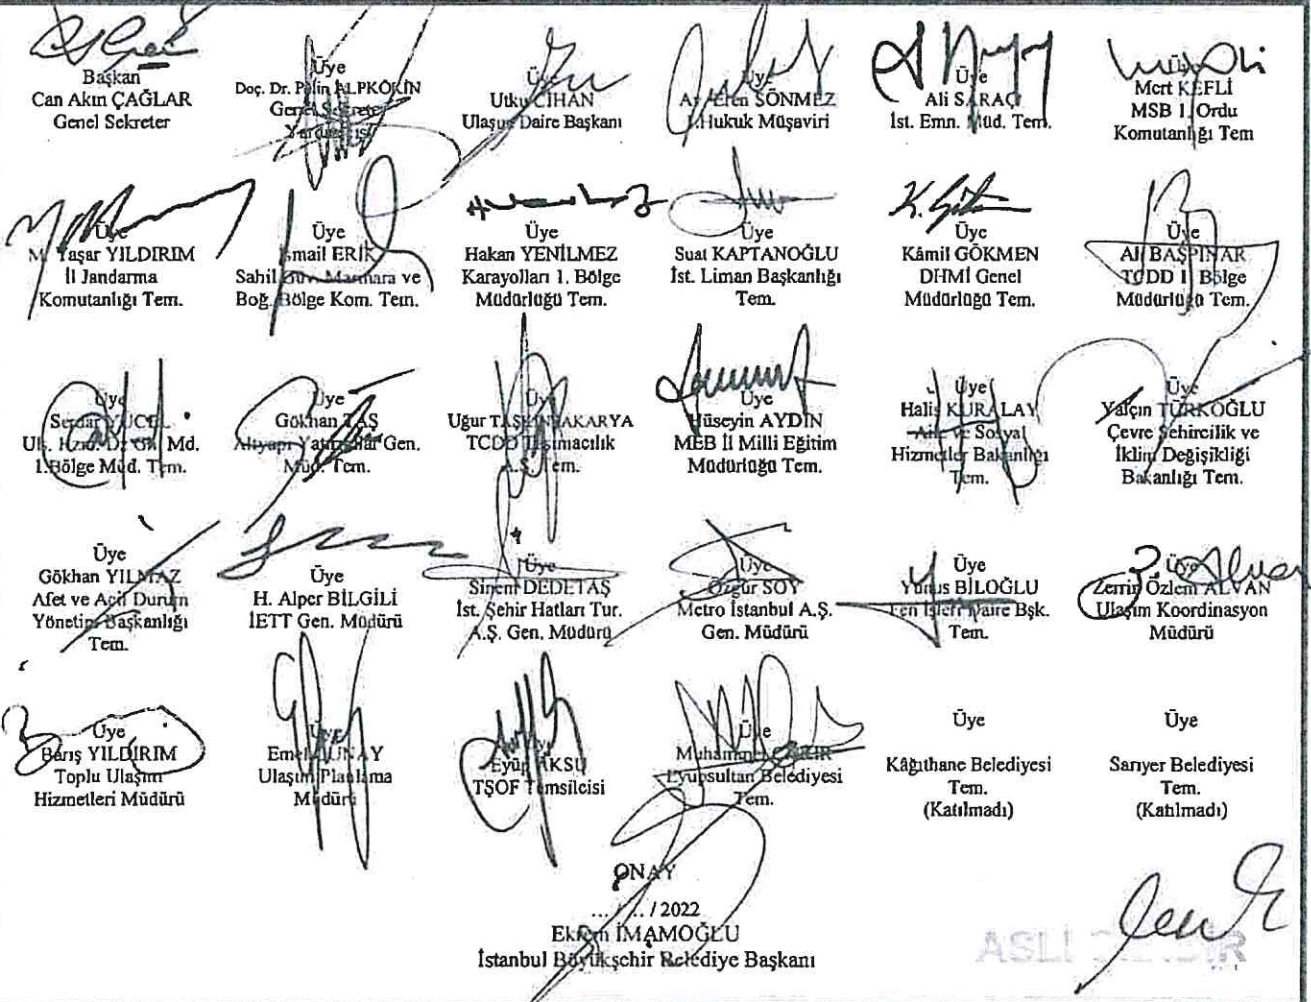 Başkan
Can Akın ÇAĞLAR
Genel Sekreter
Üye
Doç. Dr. Pelin ALPKÖKİN
Genel Sekreter
Yardımcısı
Üye
Utku CİHAN
Ulaşım Daire Başkanı
Üye
Eren SÖNMEZ
1.Hukuk Müşaviri
Üye
Ali SARAÇ
İst. Emn. Müd. Tem.
Üye
Mert KEFLİ
MSB 1. Ordu
Komutanlığı Tem
Üye
M. Yaşar YILDIRIM
İl Jandarma
Komutanlığı Tem.
Üye
İsmail ERİK
Sahil Güv. Marmara ve
Boğ. Bölge Kom. Tem.
Üye
Hakan YENİLMEZ
Karayolları 1. Bölge
Müdürlüğü Tem.
Üye
Suat KAPTANOĞLU
İst. Liman Başkanlığı
Tem.
Üye
Kâmil GÖKMEN
DHMİ Genel
Müdürlüğü Tem.
Üye
Ali BAŞPINAR
TCDD 1. Bölge
Müdürlüğü Tem.
Üye
Serdar YÜCEL
Ulş. Md.
1.Bölge Müd. Tem.
Üye
Gökhan TAŞ
Altyapı Yatırımlar Gen.
Müd. Tem.
Üye
Uğur
TCDD Taşımacılık
A.Ş. Tem.
Üye
Hüseyin AYDIN
MEB İl Milli Eğitim
Müdürlüğü Tem.
Üye
Halis KURALAY
Aile ve Sosyal
Hizmetler Bakanlığı
Tem.
Üye
Yalçın TÜRKOĞLU
Çevre Şehircilik ve
İklim Değişikliği
Bakanlığı Tem.
Üye
Gökhan YILMAZ
Afet ve Acil Durum
Yönetim Başkanlığı
Tem.
Üye
H. Alper BİLGİLİ
İETT Gen. Müdürü
Üye
Sinem DEDETAŞ
İst. Şehir Hatları Tur.
A.Ş. Gen. Müdürü
Üye
Özgür SOY
Metro İstanbul A.Ş.
Gen. Müdürü
Üye
Yunus BİLOĞLU
Fen İşleri Daire Bşk.
Tem.
Üye
Zerrin Özlem ALVAN
Ulaşım Koordinasyon
Müdürü
Üye
Barış YILDIRIM
Toplu Ulaşım
Hizmetleri Müdürü
Üye
Ulaşım Planlama
Müdürü
Eyüp AKSU
TŞOF Temsilcisi
Üye
Eyüpsultan Belediyesi
Tem.
Üye
Kâğıthane Belediyesi
Tem.
(Katılmadı)
Üye
Sarıyer Belediyesi
Tem.
(Katılmadı)
ONAY
... / .. / 2022
Ekrem İMAMOĞLU
İstanbul Büyükşehir Belediye Başkanı
ASLI GİBİDİR